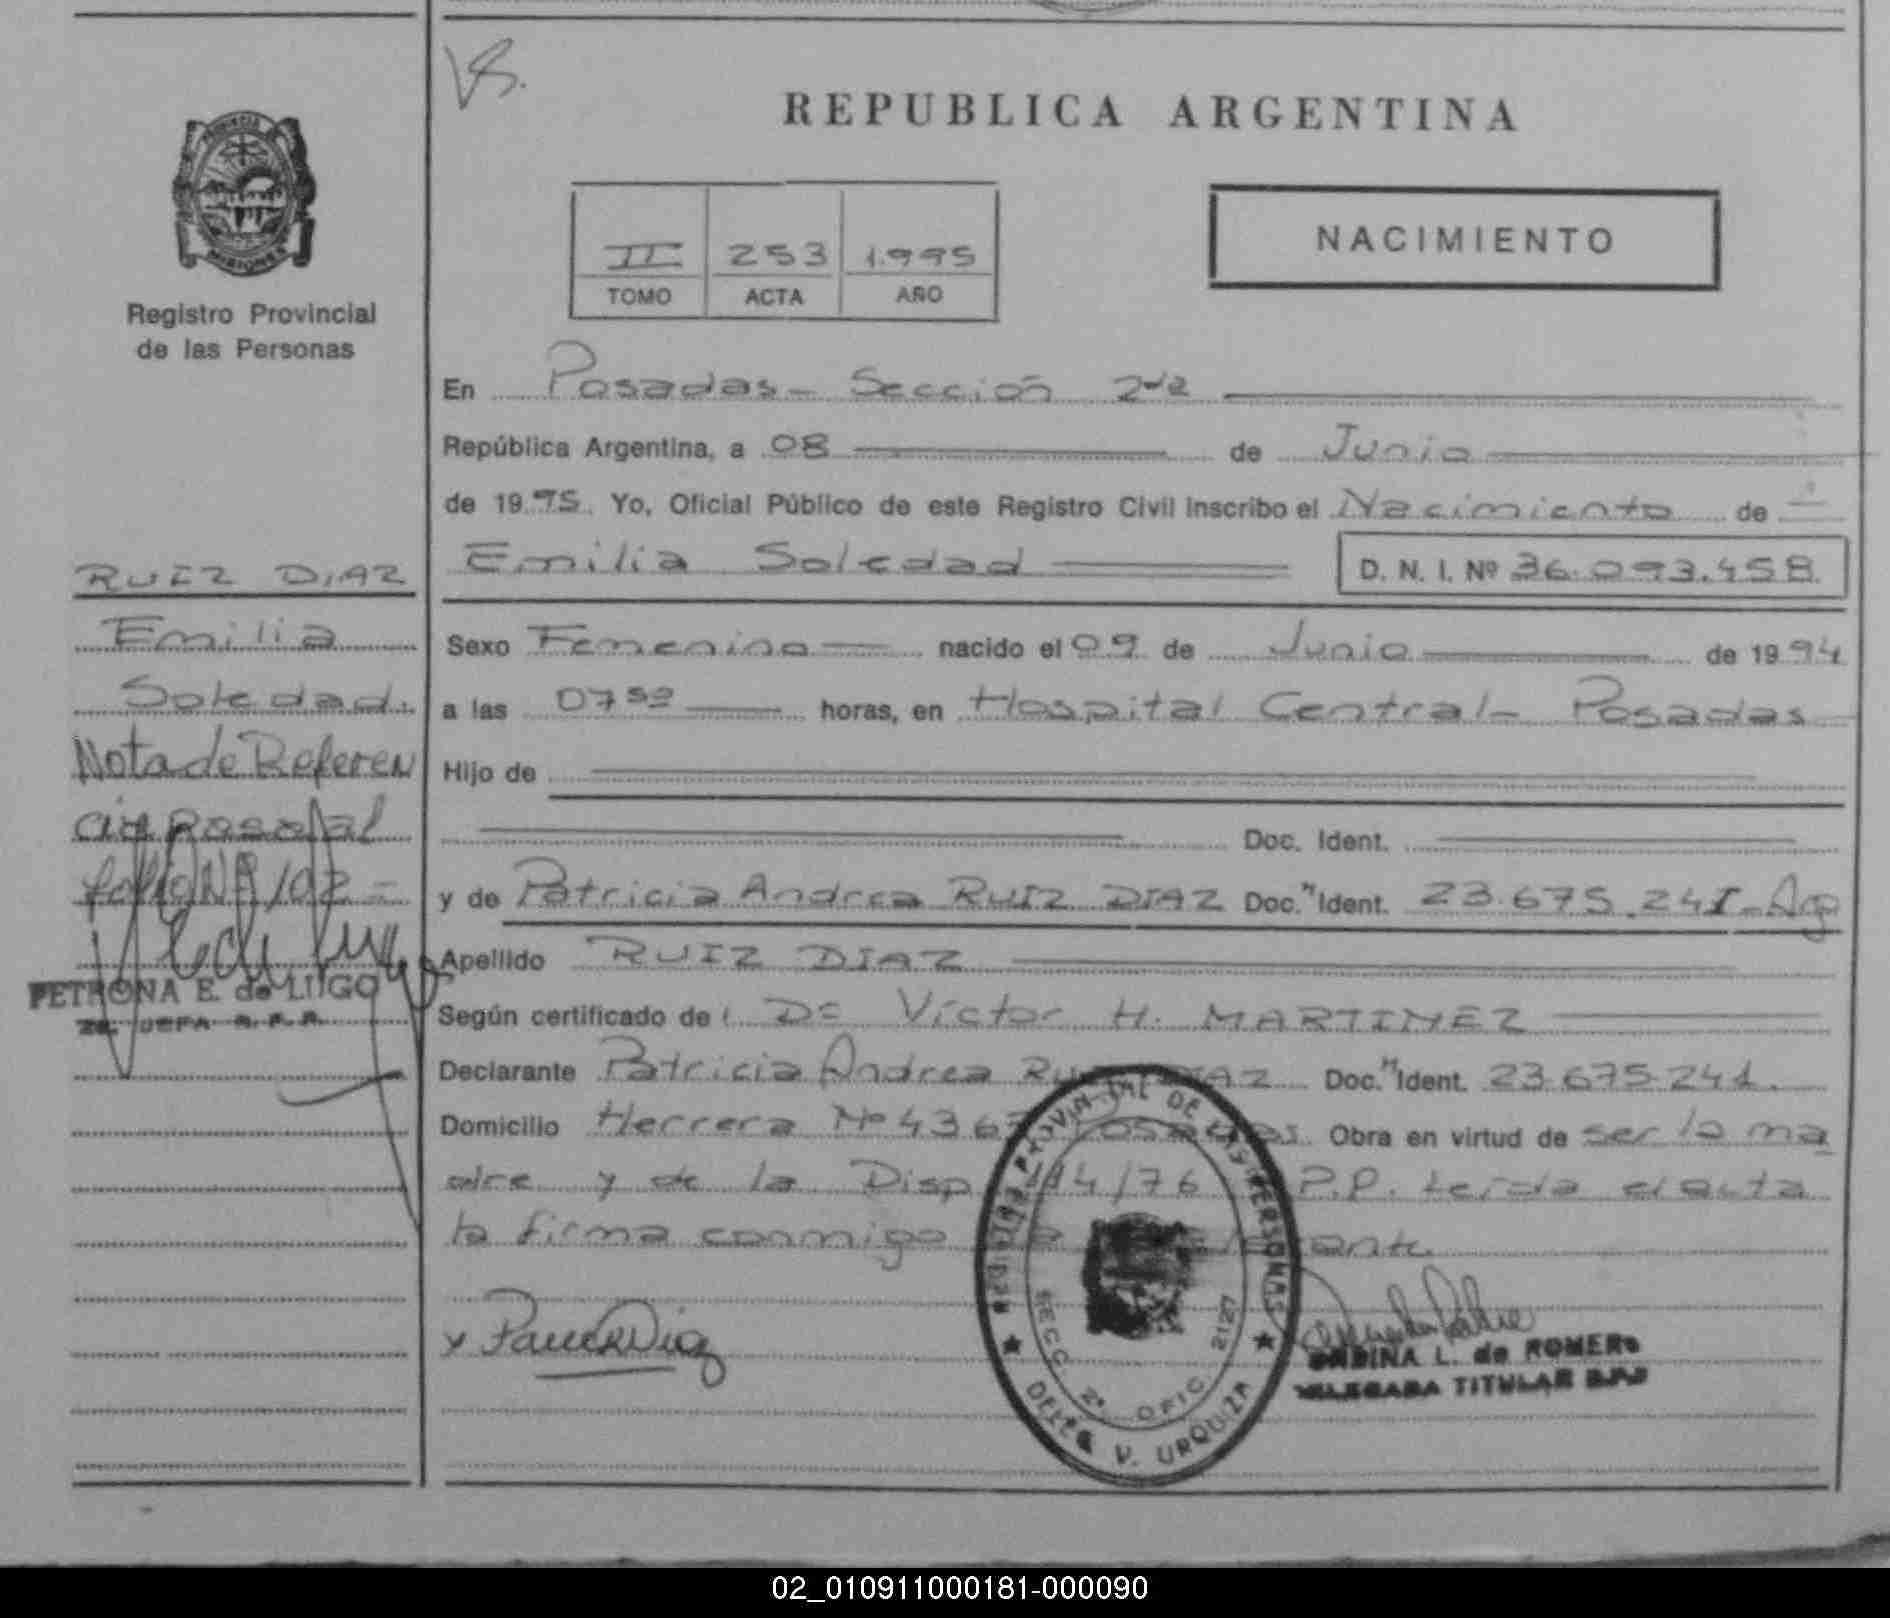 REPUBLICA ARGENTINA
PROVINCIA DE
MISIONES
Registro Provincial
de las Personas
NACIMIENTO
II 253 1.995
TOMO ACTA AÑO
En Posadas - Sección 2da
República Argentina, a 08 de Junio
de 1995. Yo, Oficial Público de este Registro Civil inscribo el Nacimiento de
Emilia Soledad D. N. I. Nº 36.093.458.
Sexo Femenino nacido el 09 de Junio de 1994
a las 07 50 horas, en Hospital Central - Posadas
Hijo de
Doc. Ident.
y de Patricia Andrea RUIZ DIAZ Doc. Ident. 23.675.241 - Ag
Apellido RUIZ DIAZ
Según certificado de Dr Víctor H. MARTINEZ
Declarante Patricia Andrea RUIZ DIAZ Doc. Ident. 23.675.241.
Domicilio Herrera Nº 436 Posadas. Obra en virtud de ser la ma
dre y de la Disp. 14/76 P.P. Leída el acta
la firma conmigo
RUIZ DIAZ
Emilia
Soledad.
Nota de Referen
cia
folio
PETRONA E. de LUGO
JEFA R.P.P.
REGISTRO PROVINCIAL DE LAS PERSONAS
SECC. 2ª OFIC. 2127
DELEG. V. URQUIZA
L. de ROMERO
DELEGADA TITULAR
02_010911000181-000090